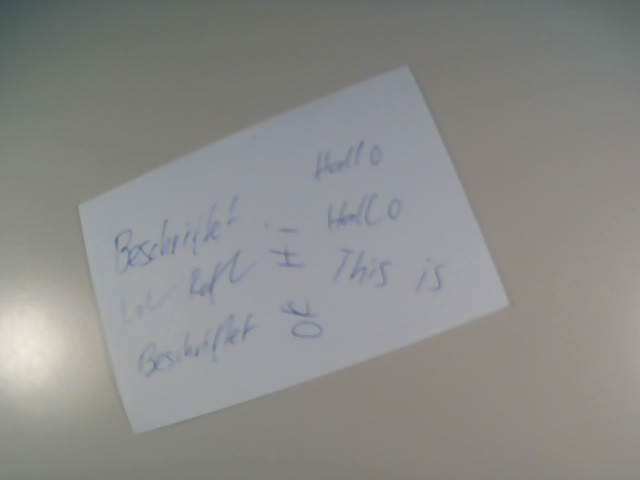 Hallo
Beschriftet
Hallo
Lol Rofl
This is
Beschriftet
OK